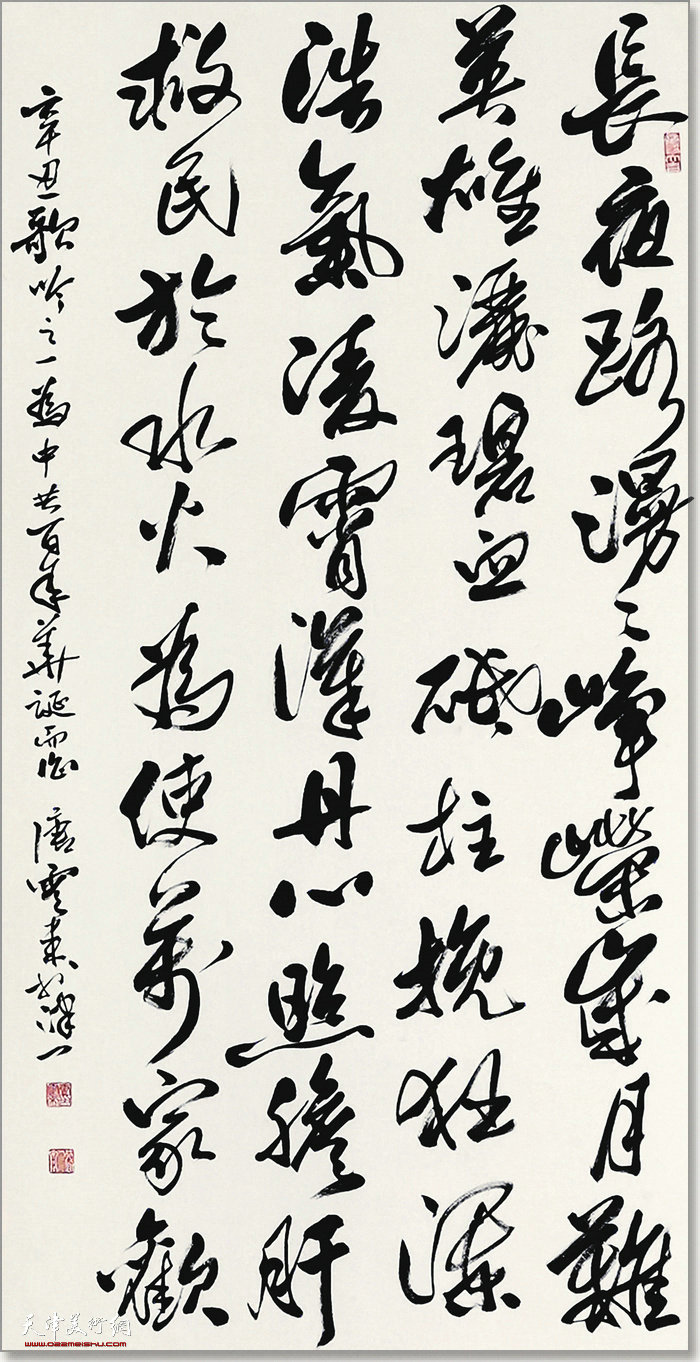 長夜路漫々崢嶸歲月難
英雄灑碧血砥柱挽狂瀾
浩氣凌霄漢丹心照膽肝
救民於水火為使萬家歡
辛丑歌吟之一為中共百年華誕而作 唐雲来於津門
天津美術網
www.022meishu.com